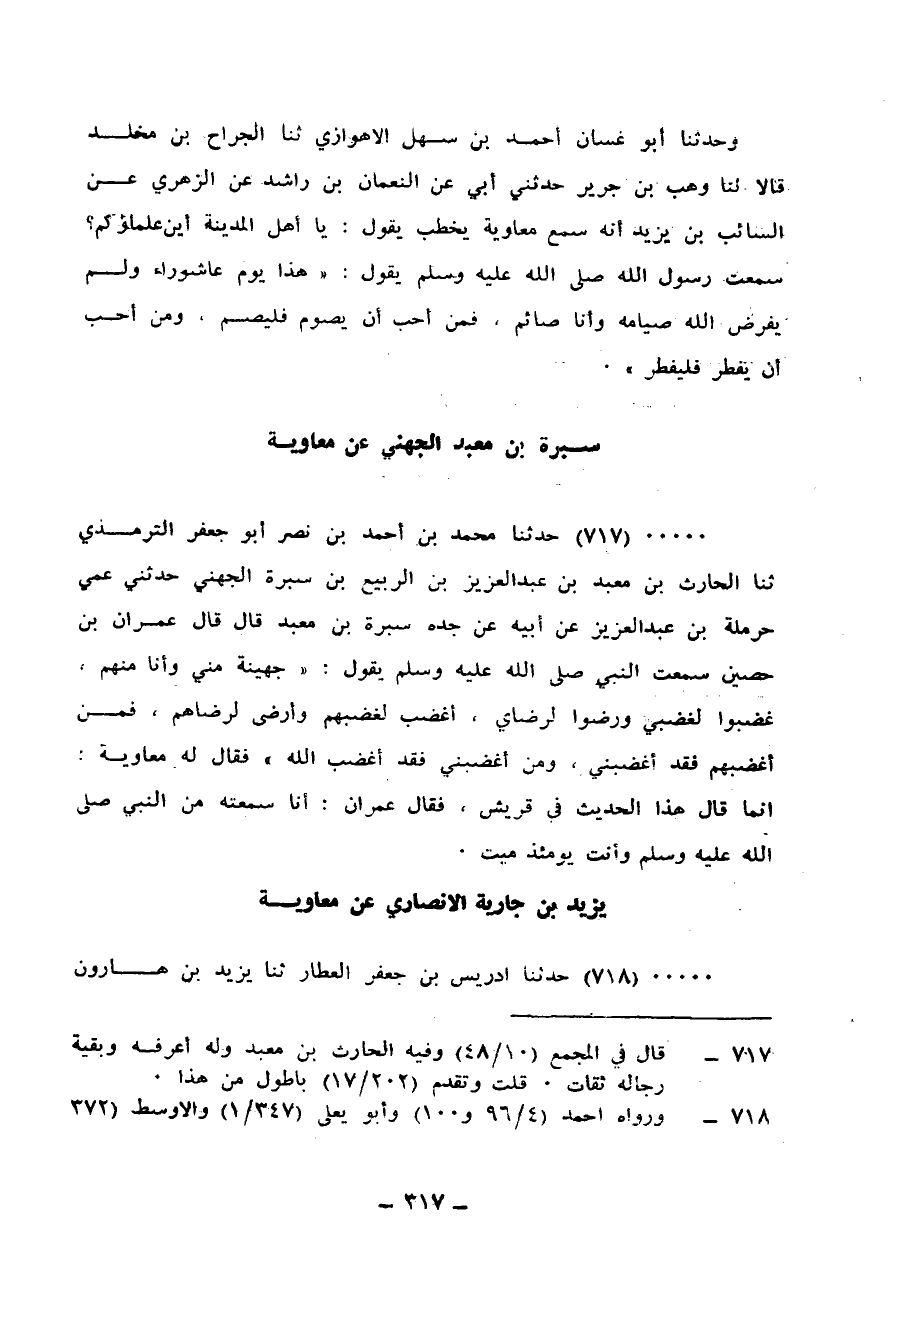 وحدثنا أبو غسان أحمد بن سهل الاهوازي ثنا الجراح بن مخلد
قالا ثنا وهب بن جرير حدثني أبي عن النعمان بن راشد عن الزهري عن
السائب بن يزيد أنه سمع معاوية يخطب يقول : يا أهل المدينة أين علماؤكم؟
سمعت رسول الله صلى الله عليه وسلم يقول : « هذا يوم عاشوراء ولم
يفرض الله صيامه وأنا صائم ، فمن أحب أن يصوم فليصم ، ومن أحب
أن يفطر فليفطر » ٠
سبرة بن معبد الجهني عن معاوية
٠٠٠٠٠ (٧١٧) حدثنا محمد بن أحمد بن نصر أبو جعفر الترمذي
ثنا الحارث بن معبد بن عبدالعزيز بن الربيع بن سبرة الجهني حدثني عمي
حرملة بن عبدالعزيز عن أبيه عن جده سبرة بن معبد قال قال عمران بن
حصين سمعت النبي صلى الله عليه وسلم يقول : « جهينة مني وأنا منهم ،
غضبوا لغضبي ورضوا لرضاي ، أغضب لغضبهم وأرضى لرضاهم ، فمن
أغضبهم فقد أغضبني ، ومن أغضبني فقد أغضب الله » فقال له معاوية :
انما قال هذا الحديث في قريش ، فقال عمران : أنا سمعته من النبي صلى
الله عليه وسلم وأنت يومئذ ميت ٠
يزيد بن جارية الانصاري عن معاوية
٠٠٠٠٠ (٧١٨) حدثنا ادريس بن جعفر العطار ثنا يزيد بن هارون
٧١٧ – قال في المجمع (٤٨/١٠) وفيه الحارث بن معبد وله أعرفه وبقية
رجاله ثقات ٠ قلت وتقدم (١٧/٢٠٢) باطول من هذا ٠
٧١٨ – ورواه احمد (٩٦/٤ و١٠٠) وأبو يعلى (١/٣٤٧) والاوسط (٣٧٢
– ٣١٧ –